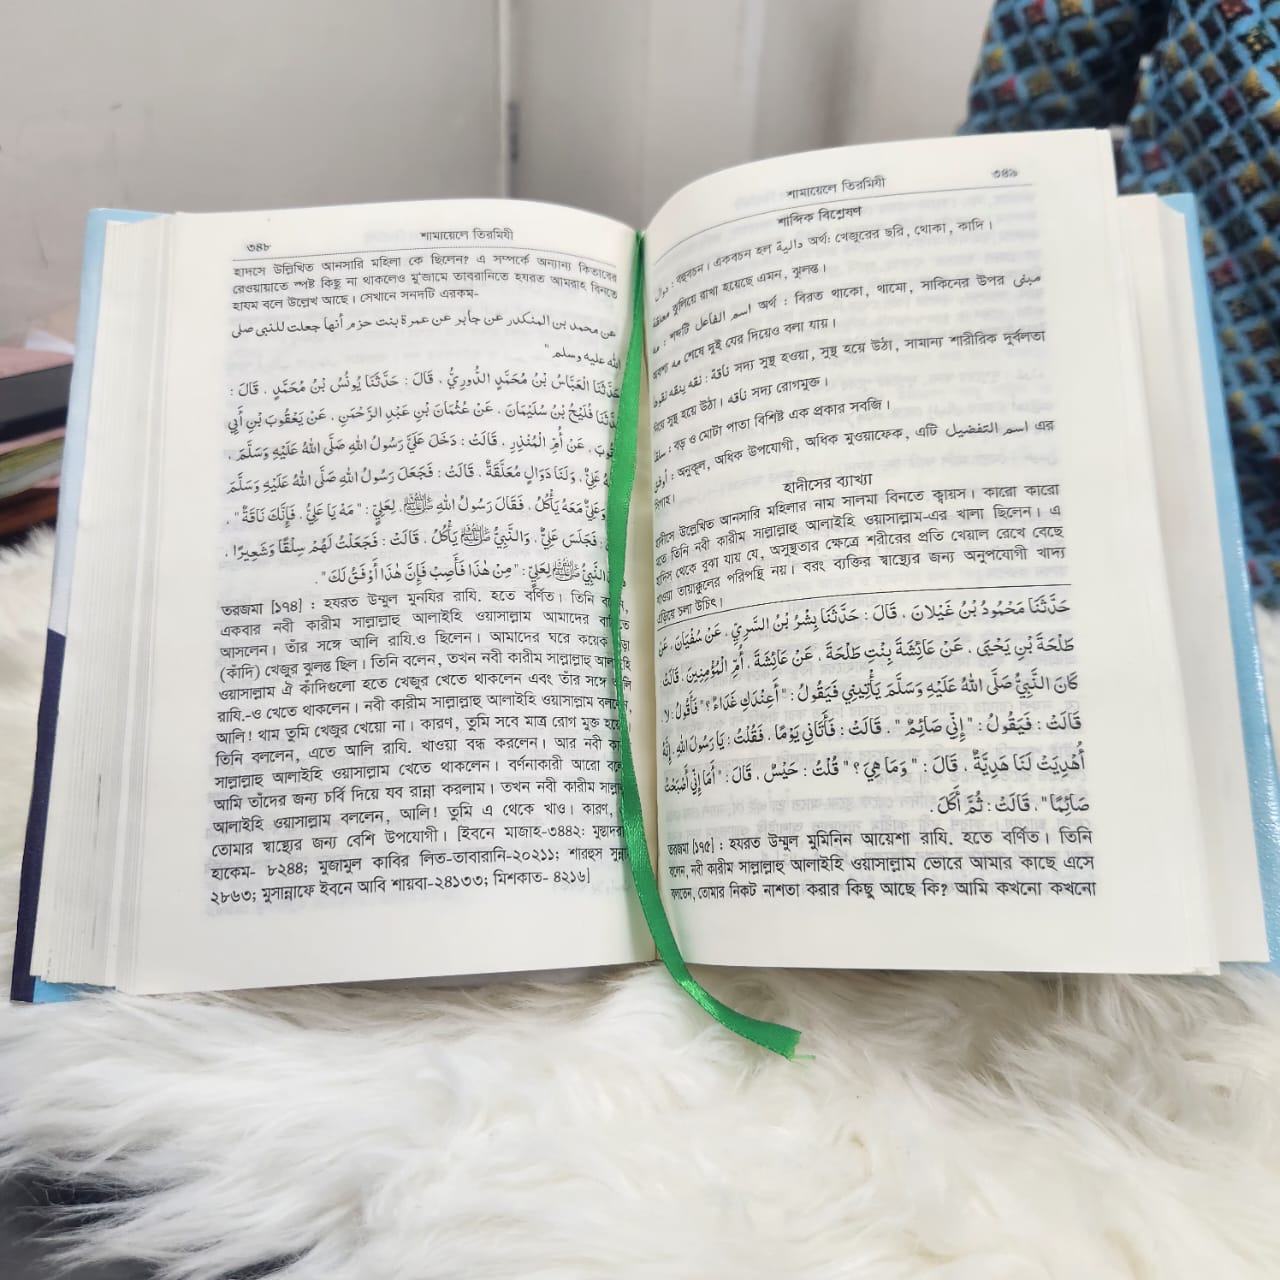 ৩৪৮ শামায়েলে তিরমিযী
হাদসে উল্লিখিত আনসারি মহিলা কে ছিলেন? এ সম্পর্কে অন্যান্য কিতাবের
রেওয়ায়াতে স্পষ্ট কিছু না থাকলেও মু'জামে তাবরানিতে হযরত আমরাহ বিনতে
হাযম বলে উল্লেখ আছে। সেখানে সনদটি এরকম-
عن محمد بن المنكدر عن جابر عن عمرة بنت حزم أنها جعلت للنبى صلى
الله عليه وسلم "
حَدَّثَنَا الْعَبَّاسُ بْنُ مُحَمَّدٍ الدُّورِيُّ ، قَالَ : حَدَّثَنَا يُونُسُ بْنُ مُحَمَّدٍ ، قَالَ :
فُلَيْحُ بْنُ سُلَيْمَانَ ، عَنْ عُثْمَانَ بْنِ عَبْدِ الرَّحْمَنِ ، عَنْ يَعْقُوبَ بْنِ أَبِي
عَنْ أُمِّ الْمُنْذِرِ ، قَالَتْ : دَخَلَ عَلَيَّ رَسُولُ اللهِ صَلَّى اللهُ عَلَيْهِ وَسَلَّمَ ،
عَلِيٌّ ، وَلَنَا دَوَالٍ مُعَلَّقَةٌ ، قَالَتْ : فَجَعَلَ رَسُولُ اللهِ صَلَّى اللهُ عَلَيْهِ وَسَلَّمَ
وَعَلِيٌّ مَعَهُ يَأْكُلُ ، فَقَالَ رَسُولُ اللهِ ﷺ ، لِعَلِيٍّ : " مَهْ يَا عَلِيُّ ، فَإِنَّكَ نَاقَةٌ " ،
فَجَلَسَ عَلِيٌّ ، وَالنَّبِيُّ ﷺ يَأْكُلُ ، قَالَتْ : فَجَعَلْتُ لَهُمْ سِلْقًا وَشَعِيرًا ،
النَّبِيُّ ﷺ لِعَلِيٍّ : " مِنْ هٰذَا فَأَصِبْ فَإِنَّ هٰذَا أَوْفَقُ لَكَ " .
তরজমা [১৭৪] : হযরত উম্মুল মুনযির রাযি. হতে বর্ণিত। তিনি বলেন,
একবার নবী কারীম সাল্লাল্লাহু আলাইহি ওয়াসাল্লাম আমাদের বাড়িতে
আসলেন। তাঁর সঙ্গে আলি রাযি.ও ছিলেন। আমাদের ঘরে কয়েক
(কাঁদি) খেজুর ঝুলন্ত ছিল। তিনি বলেন, তখন নবী কারীম সাল্লাল্লাহু আলাইহি
ওয়াসাল্লাম ঐ কাঁদিগুলো হতে খেজুর খেতে থাকলেন এবং তাঁর সঙ্গে আলি
রাযি.-ও খেতে থাকলেন। নবী কারীম সাল্লাল্লাহু আলাইহি ওয়াসাল্লাম বললেন,
আলি! থাম তুমি খেজুর খেয়ো না। কারণ, তুমি সবে মাত্র রোগ মুক্ত
তিনি বললেন, এতে আলি রাযি. খাওয়া বন্ধ করলেন। আর নবী কারীম
সাল্লাল্লাহু আলাইহি ওয়াসাল্লাম খেতে থাকলেন। বর্ণনাকারী আরো বলেন
আমি তাঁদের জন্য চর্বি দিয়ে যব রান্না করলাম। তখন নবী কারীম সাল্লাল্লাহু
আলাইহি ওয়াসাল্লাম বললেন, আলি! তুমি এ থেকে খাও। কারণ,
তোমার স্বাস্থ্যের জন্য বেশি উপযোগী। [ইবনে মাজাহ-৩৪৪২: মুস্তাদরা
হাকেম- ৮২৪৪; মুজামুল কাবির লিত-তাবারানি-২০২১১; শারহুস সুন্নাহ
২৮৬৩; মুসান্নাফে ইবনে আবি শায়বা-২৪১৩৩; মিশকাত- ৪২১৬]
শামায়েলে তিরমিযী ৩৪৯
শাব্দিক বিশ্লেষণ
دوال : বহুবচন। একবচন হল دالية অর্থ: খেজুরের ছরি, থোকা, কাদি।
معلقة ঝুলিয়ে রাখা হয়েছে এমন, ঝুলন্ত।
مه : শব্দটি اسم الفاعل অর্থ : বিরত থাকো, থামো, সাকিনের উপর مبنى
অবশ্য مه শেষে দুই যের দিয়েও বলা যায়।
ناقة : نقه ينقه نقوها সদ্য সুস্থ হওয়া, সুস্থ হয়ে উঠা, সামান্য শারীরিক দুর্বলতা
নিয়ে সুস্থ হয়ে উঠা। ناقه সদ্য রোগমুক্ত।
سلقا : বড় ও মোটা পাতা বিশিষ্ট এক প্রকার সবজি।
أوفق : অনুকূল, অধিক উপযোগী, অধিক মুওয়াফেক, এটি اسم التفضيل এর
সিগাহ।
হাদীসের ব্যাখ্যা
হাদীসে উল্লেখিত আনসারি মহিলার নাম সালমা বিনতে ক্বায়স। কারো কারো
মতে তিনি নবী কারীম সাল্লাল্লাহু আলাইহি ওয়াসাল্লাম-এর খালা ছিলেন। এ
হাদিস থেকে বুঝা যায় যে, অসুস্থতার ক্ষেত্রে শরীরের প্রতি খেয়াল রেখে বেছে
খাওয়া তায়াক্কুলের পরিপন্থি নয়। বরং ব্যক্তির স্বাস্থ্যের জন্য অনুপযোগী খাদ্য
এড়িয়ে চলা উচিৎ।
حَدَّثَنَا مَحْمُودُ بْنُ غَيْلَانَ ، قَالَ : حَدَّثَنَا بِشْرُ بْنُ السَّرِيِّ ، عَنْ سُفْيَانَ ، عَنْ
طَلْحَةَ بْنِ يَحْيَى ، عَنْ عَائِشَةَ بِنْتِ طَلْحَةَ ، عَنْ عَائِشَةَ ، أُمِّ الْمُؤْمِنِينَ ، قَالَتْ :
كَانَ النَّبِيُّ صَلَّى اللهُ عَلَيْهِ وَسَلَّمَ يَأْتِينِي فَيَقُولُ : " أَعِنْدَكِ غَدَاءٌ ؟ " فَأَقُولُ : لَا ،
قَالَتْ : فَيَقُولُ : " إِنِّي صَائِمٌ " ، قَالَتْ : فَأَتَانِي يَوْمًا ، فَقُلْتُ : يَا رَسُولَ اللهِ ، إِنَّهُ
أُهْدِيَتْ لَنَا هَدِيَّةٌ ، قَالَ : " وَمَا هِيَ ؟ " قُلْتُ : حَيْسٌ ، قَالَ : " أَمَا إِنِّي أَصْبَحْتُ
صَائِمًا " ، قَالَتْ : ثُمَّ أَكَلَ .
তরজমা [১৭৫] : হযরত উম্মুল মুমিনিন আয়েশা রাযি. হতে বর্ণিত। তিনি
বলেন, নবী কারীম সাল্লাল্লাহু আলাইহি ওয়াসাল্লাম ভোরে আমার কাছে এসে
বলতেন, তোমার নিকট নাশতা করার কিছু আছে কি? আমি কখনো কখনো